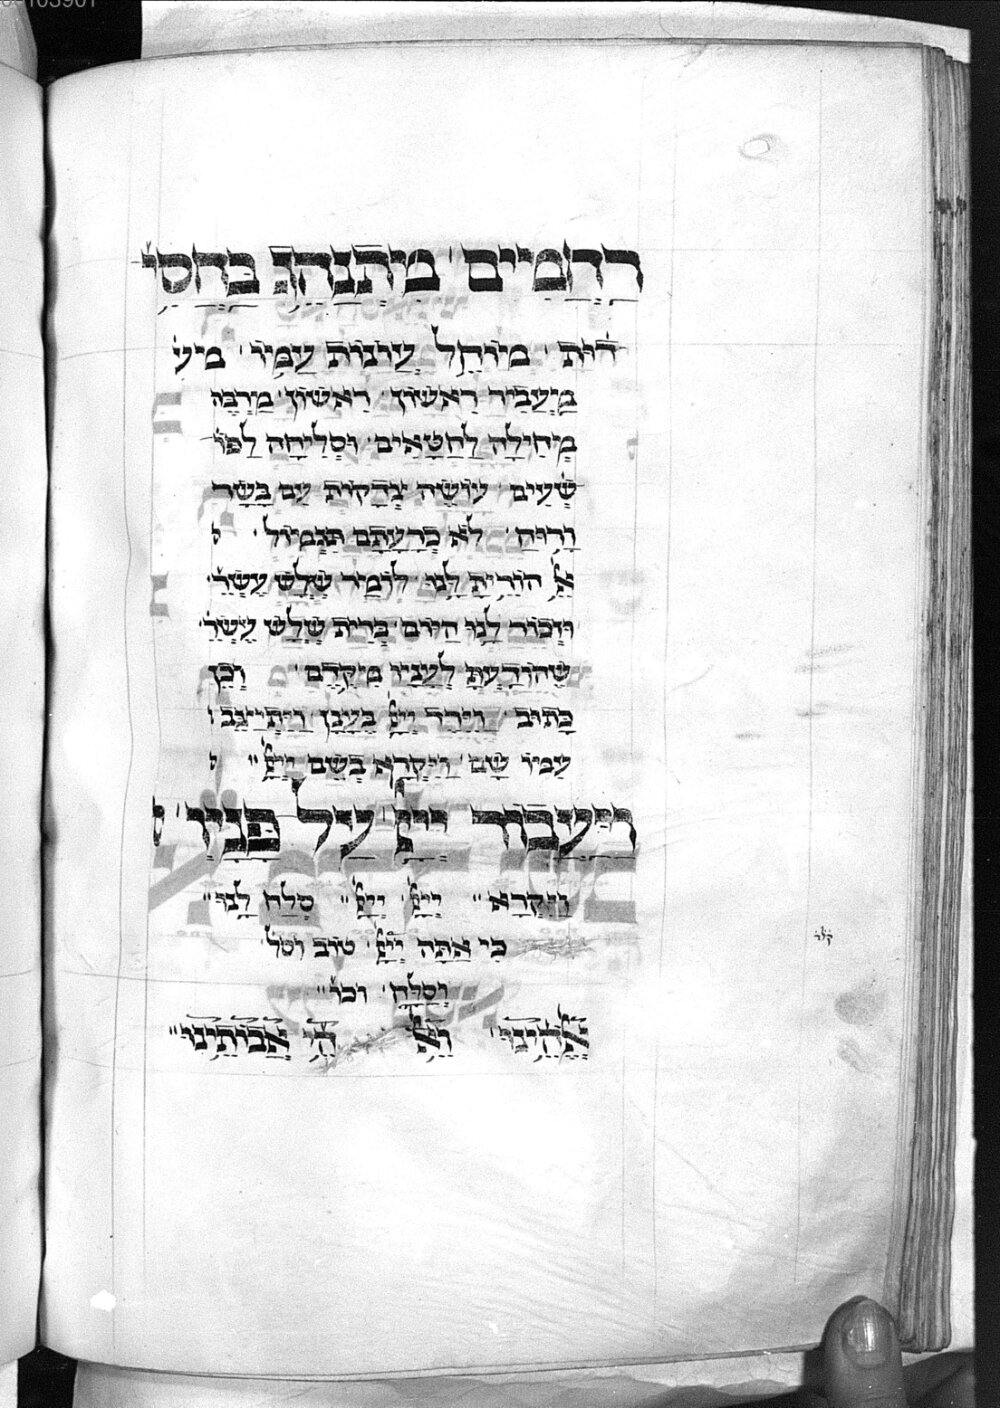 רַחֲמִים׳ מִתְנַהֵג בַּחֲסִי׳
דוּת׳ מוֹחֵל עֲוֹנוֹת עַמּוֹ׳ מיע׳
מַעֲבִיר רִאשׁוֹן רִאשׁוֹן׳ מַרְבֶּה
מְחִילָה לַחַטָּאִים׳ וּסְלִיחָה לַפּוֹ׳
שְׁעִים׳ עוֹשֶׂה צְדָקוֹת עִם בָּשָׂר
וָרוּחַ׳ לֹא כְרָעָתָם תִּגְמוֹל׳
אֵל הוֹרֵיתָ לָּנוּ לוֹמַר שְׁלֹשׁ עֶשְׂרֵ׳
וּזְכוֹר לָנוּ הַיּוֹם בְּרִית שְׁלֹשׁ עֶשְׂרֵ׳
שֶׁהוֹדַעְתָּ לֶעָנָיו מִקֶּדֶם׳ וְכֵן
כָּתוּב׳ וַיֵּרֶד יְיָ בֶּעָנָן וַיִּתְיַצֵּב
עִמּוֹ שָׁם׳ וַיִּקְרָא בְשֵׁם יְיָ״
וַיַּעֲבוֹר יְיָ עַל פָּנָיו׳
וַיִּקְרָא״ יְיָ׳ יְיָ״ סְלַח לָנוּ״
כִּי אַתָּה יְיָ׳ טוֹב וסל׳
וְסַלָּח׳ וכו׳״
אֱלֹהֵינוּ׳ וֵאל׳ הֵי אֲבוֹתֵינוּ״
קלר